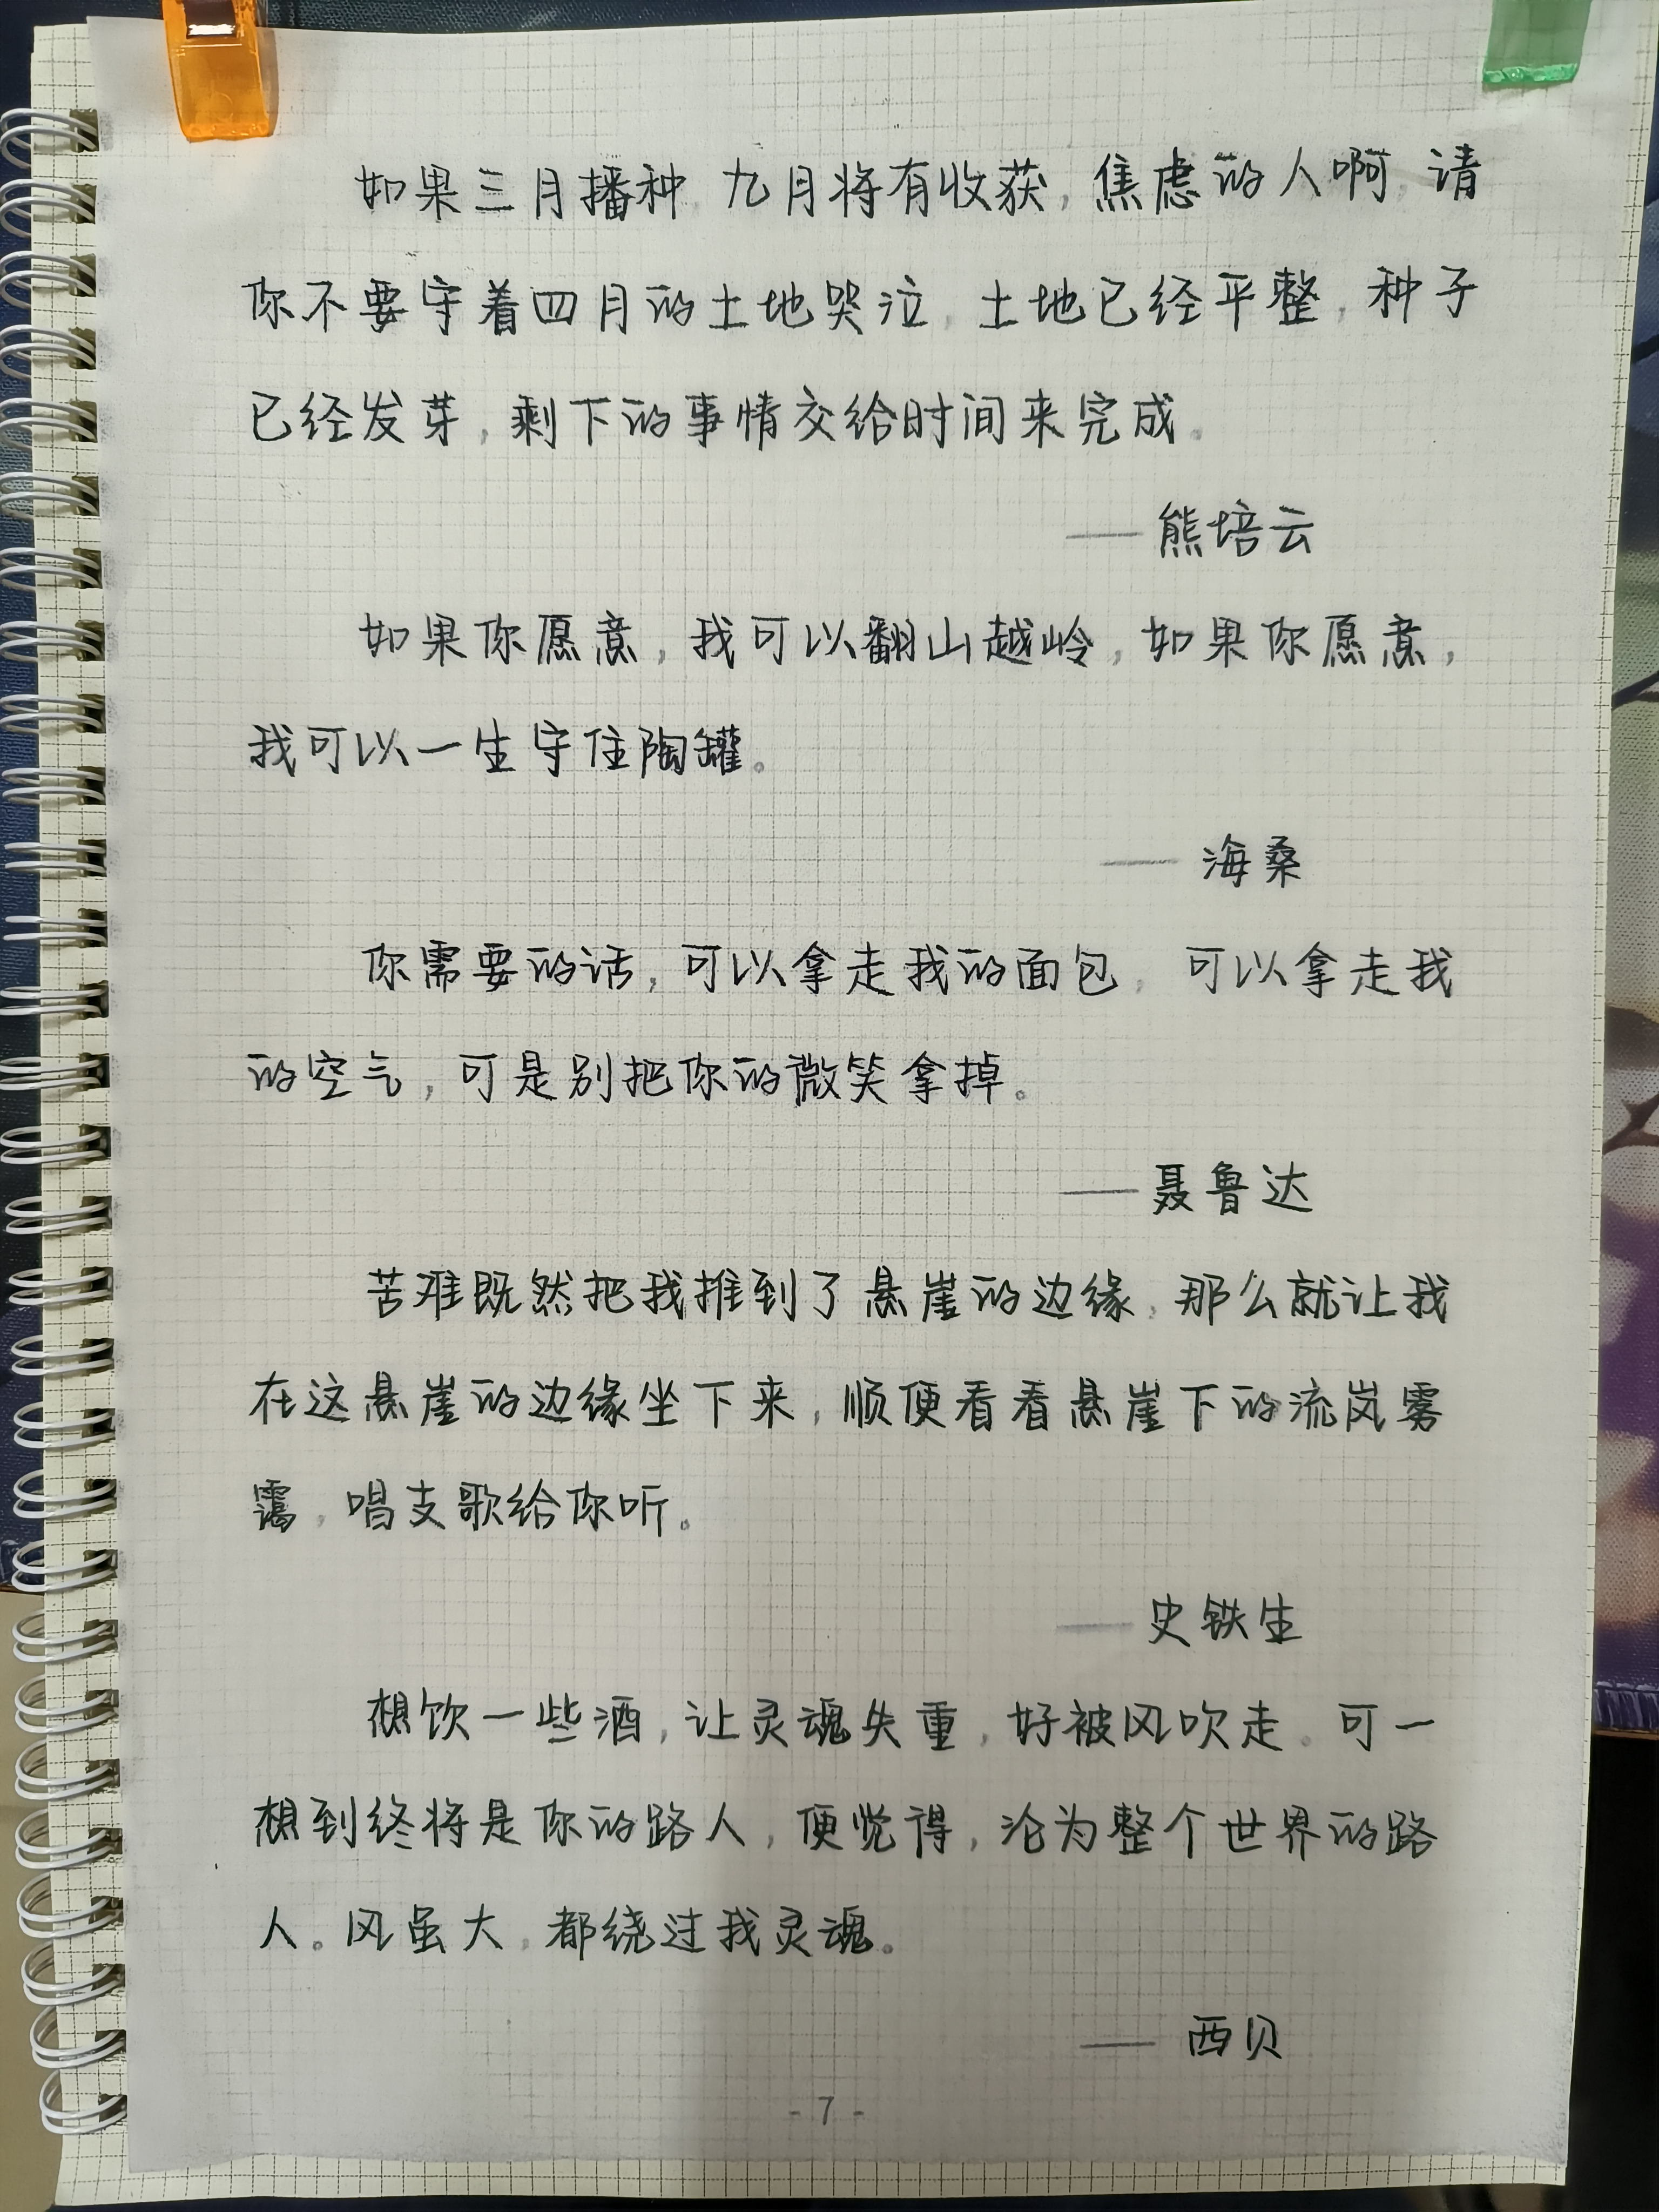 如果三月播种,九月将有收获,焦虑的人啊,请
你不要守着四月的土地哭泣,土地已经平整,种子
已经发芽,剩下的事情交给时间来完成。
——熊培云
如果你愿意,我可以翻山越岭,如果你愿意,
我可以一生守住陶罐。
——海桑
你需要的话,可以拿走我的面包,可以拿走我
的空气,可是别把你的微笑拿掉。
——聂鲁达
苦难既然把我推到了悬崖的边缘,那么就让我
在这悬崖的边缘坐下来,顺便看看悬崖下的流岚雾
霭,唱支歌给你听。
——史铁生
想饮一些酒,让灵魂失重,好被风吹走。可一
想到终将是你的路人,便觉得,沦为整个世界的路
人。风虽大,都绕过我灵魂。
——西贝
-7-